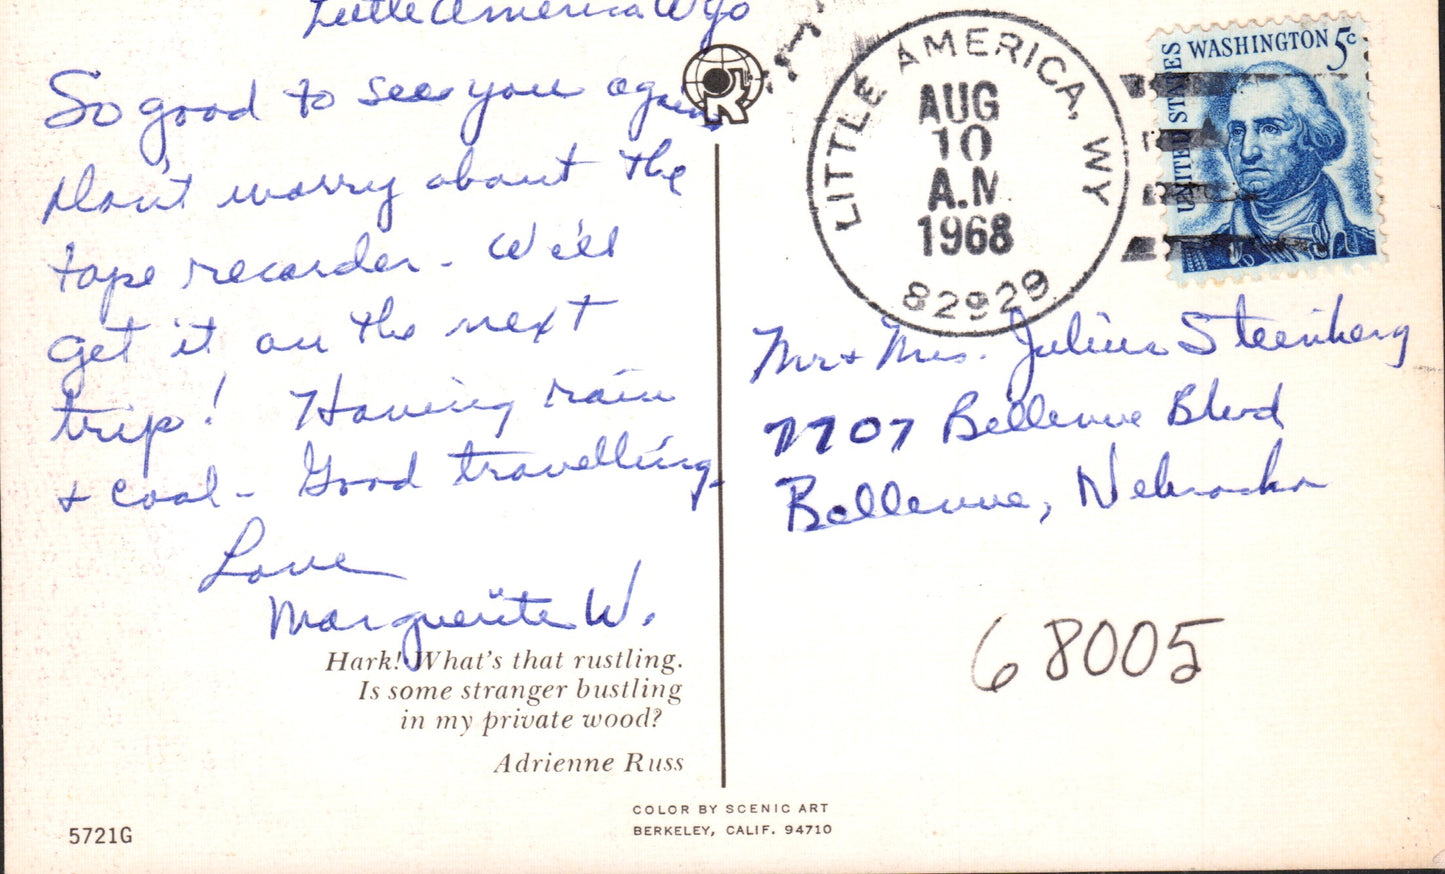 Little America Wyo
So good to see you again
Don't worry about the
tape recorder - We'll
get it on the next
trip! Having rain
+ cool - Good travelling
Love
Marguerite W.
Hark! What's that rustling.
Is some stranger bustling
in my private wood?
Adrienne Russ
5721G
COLOR BY SCENIC ART
BERKELEY, CALIF. 94710
LITTLE AMERICA, WY
AUG
10
A.M
1968
82929
UNITED STATES
WASHINGTON 5c
Mr + Mrs. Julius Steinberg
7707 Bellevue Blvd
Bellevue, Nebraska
68005